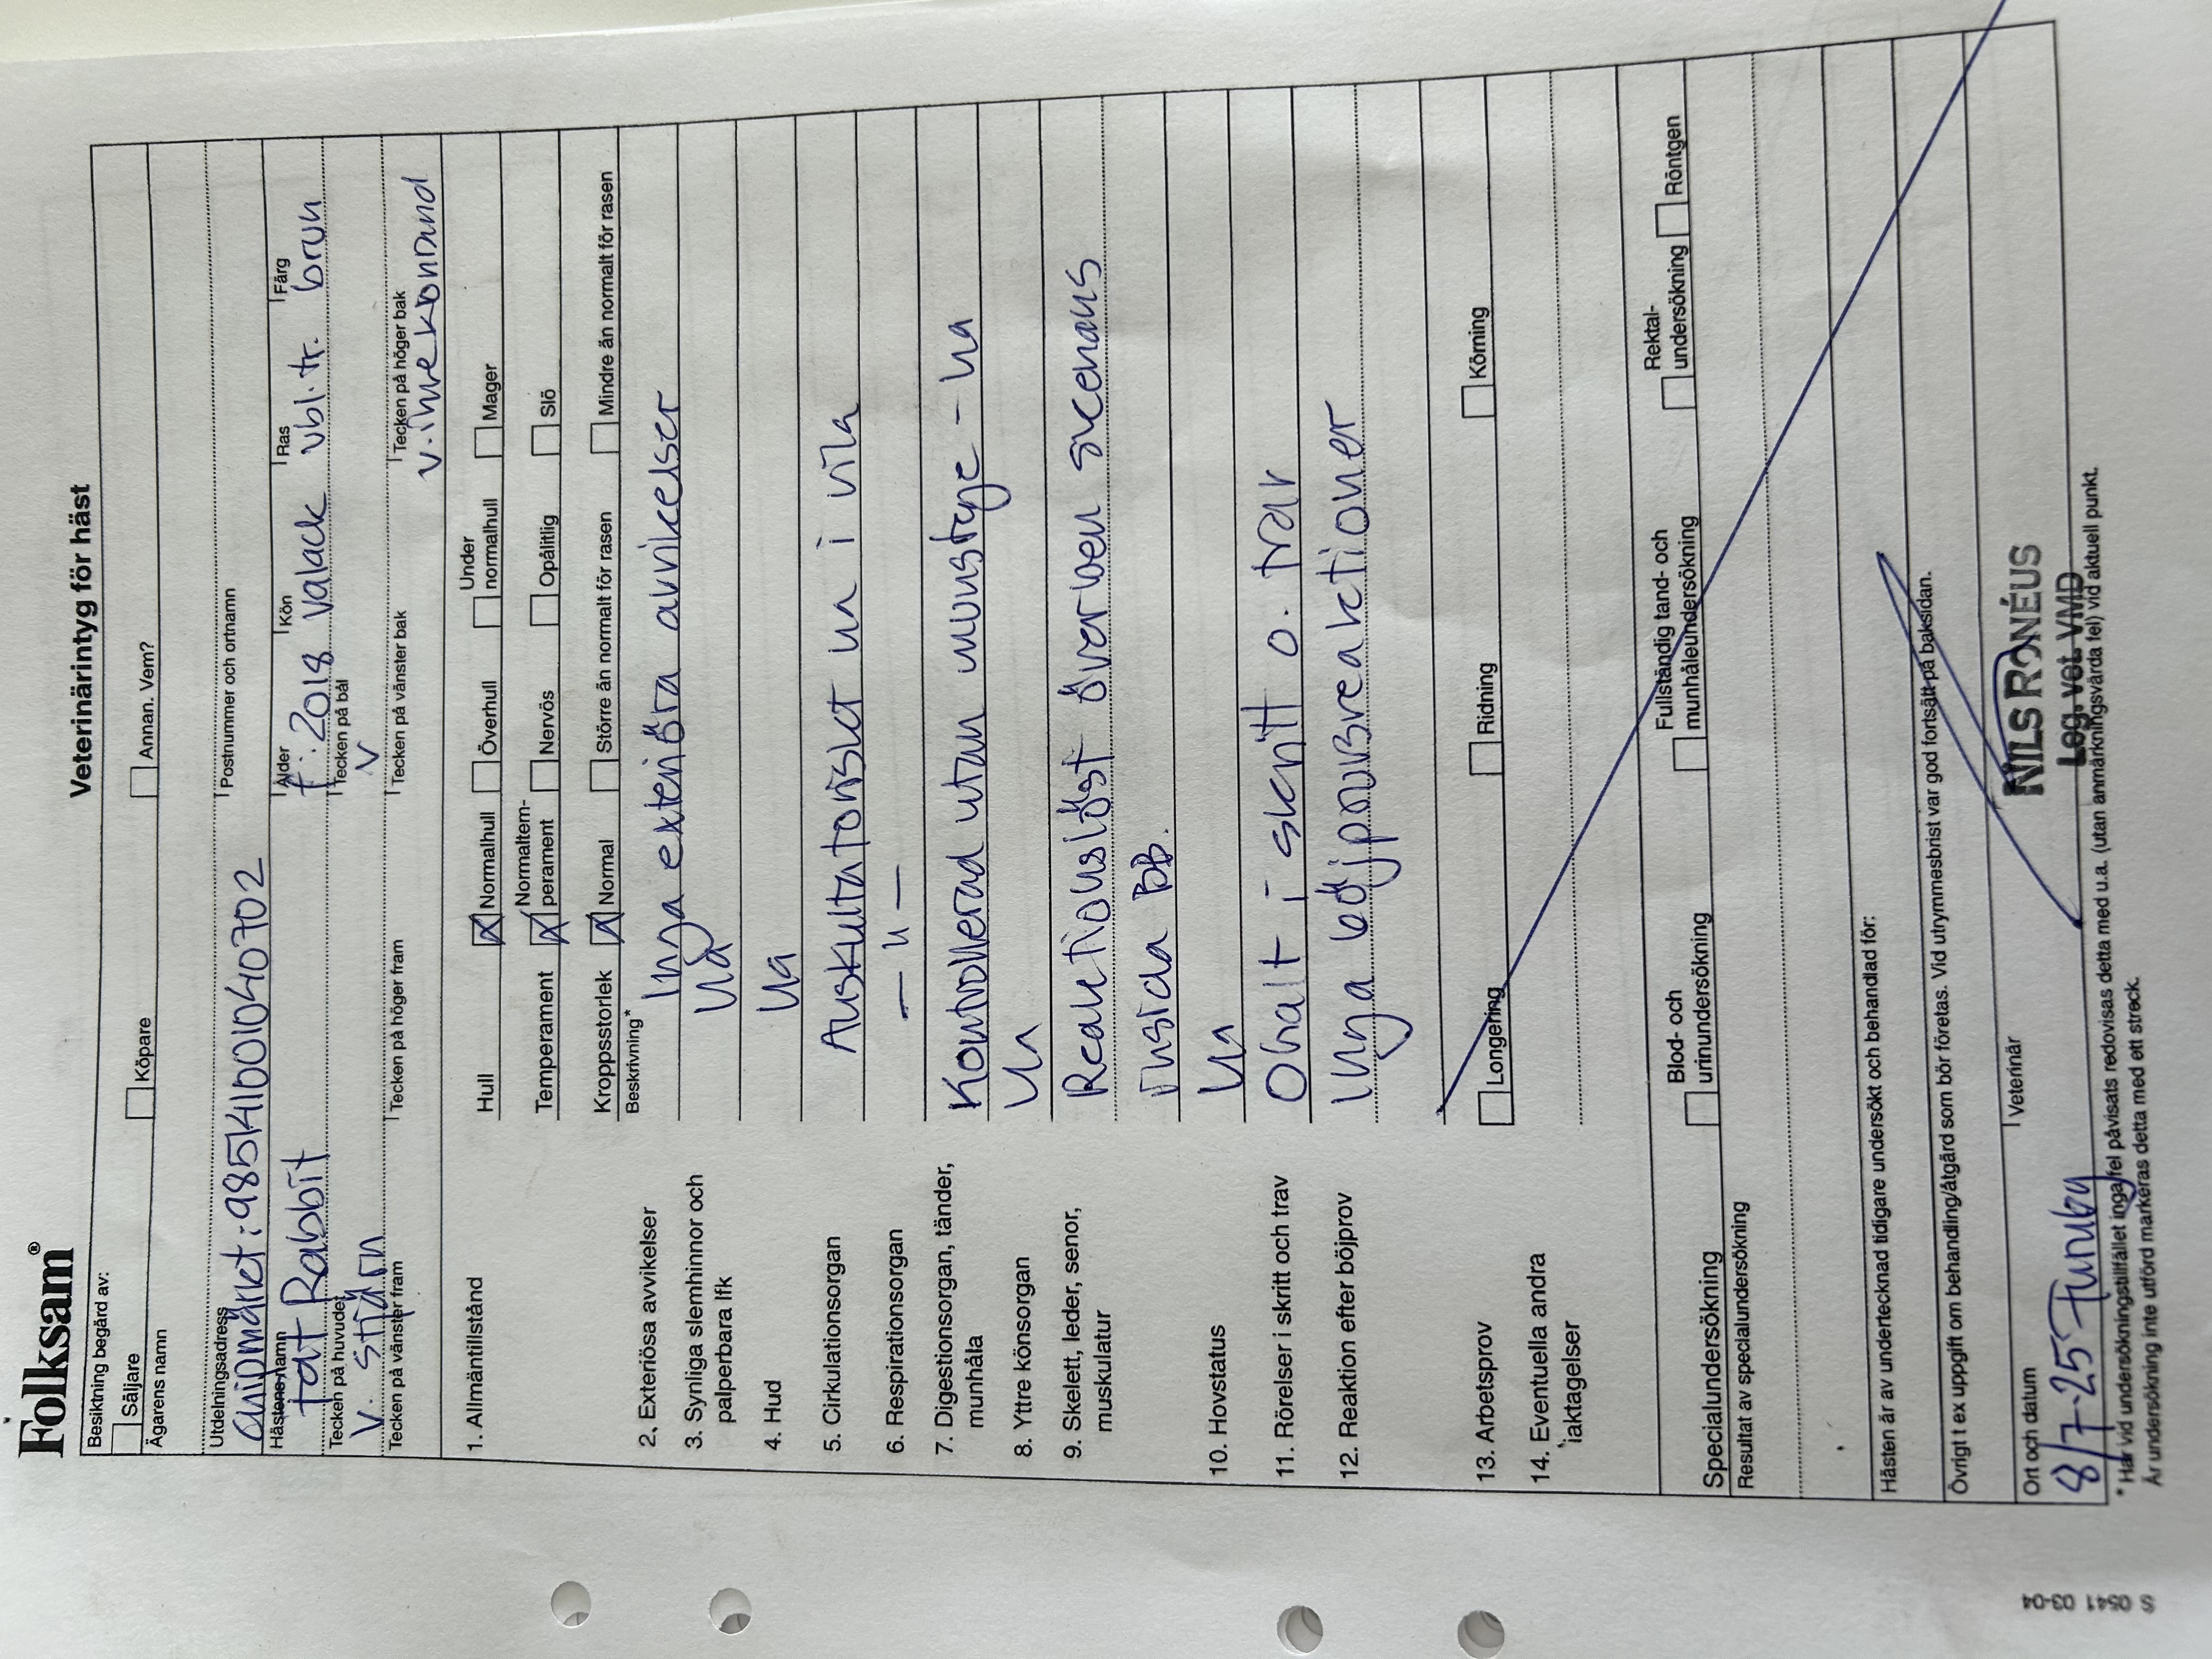 Folksam®
Veterinärintyg för häst
Besiktning begärd av:
Säljare
Köpare
Annan. Vem?
Ägarens namn
Utdelningsadress
Postnummer och ortnamn
Chipmärkt: 985141001040702
Hästens namn
Ålder
Kön
Ras
Färg
Fat Rabbit
f. 2018 valack vbl.tr. brun
Tecken på huvudet
Tecken på bål
v. stjärn
v
Tecken på vänster fram
Tecken på höger fram
Tecken på vänster bak
Tecken på höger bak
v. inre kronrand
1. Allmäntillstånd
Hull
Normalhull
Överhull
Under normalhull
Mager
Temperament
Normaltem-
perament
Nervös
Opålitlig
Slö
Kroppsstorlek
Normal
Större än normalt för rasen
Mindre än normalt för rasen
Beskrivning*
2. Exteriösa avvikelser
Inga exteriöra avvikelser
3. Synliga slemhinnor och
palperbara lfk
ua
4. Hud
ua
5. Cirkulationsorgan
Auskultatoriskt ua i vila
6. Respirationsorgan
— " —
7. Digestionsorgan, tänder,
munhåla
Kontrollerad utan munstege - ua
8. Yttre könsorgan
ua
9. Skelett, leder, senor,
muskulatur
Reaktionslöst överben svcenous
insida BB.
10. Hovstatus
ua
11. Rörelser i skritt och trav
Ohalt i skritt o. trav
12. Reaktion efter böjprov
Inga böjprovsreaktioner
13. Arbetsprov
Longering
Ridning
Körning
14. Eventuella andra
iakttagelser
Specialundersökning
Blod- och
urinundersökning
Fullständig tand- och
munhåleundersökning
Rektal-
undersökning
Röntgen
Resultat av specialundersökning
Hästen är av undertecknad tidigare undersökt och behandlad för:
Övrigt t ex uppgift om behandling/åtgärd som bör företas. Vid utrymmesbrist var god fortsätt på baksidan.
Ort och datum
Veterinär
8/7-25
NILS RONÉUS
Leg. vet. VMD
* Har vid undersökningstillfället inga fel påvisats redovisas detta med u.a. (utan anmärkningsvärda fel) vid aktuell punkt.
Är undersökning inte utförd markeras detta med ett streck.
S 0541 03-04